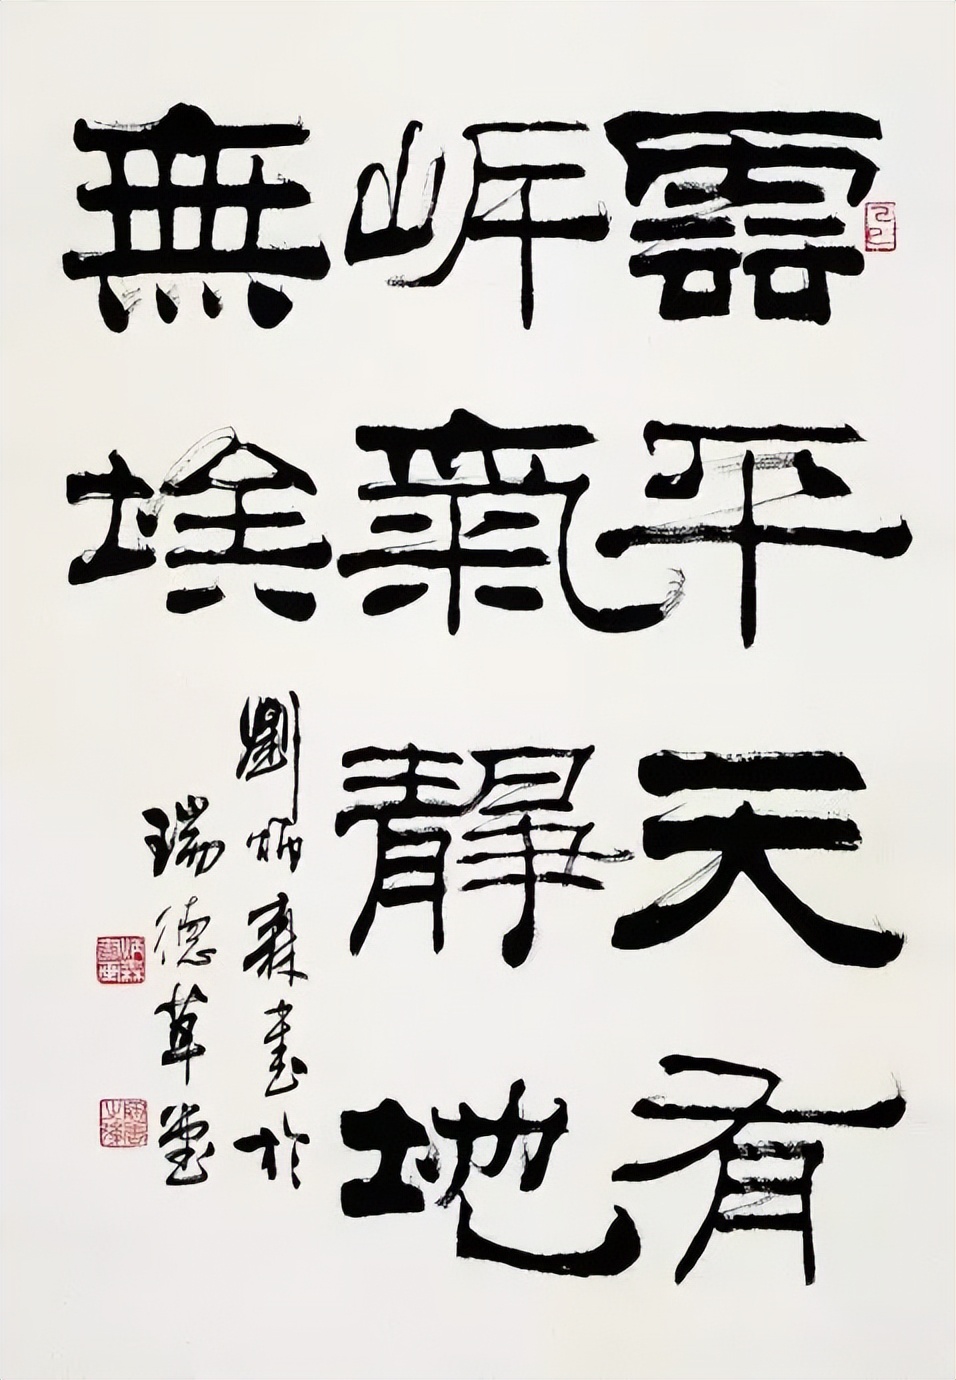 雲平天有
岸氣靜地
無埃
劉炳森書於
瑞德草堂
己巳